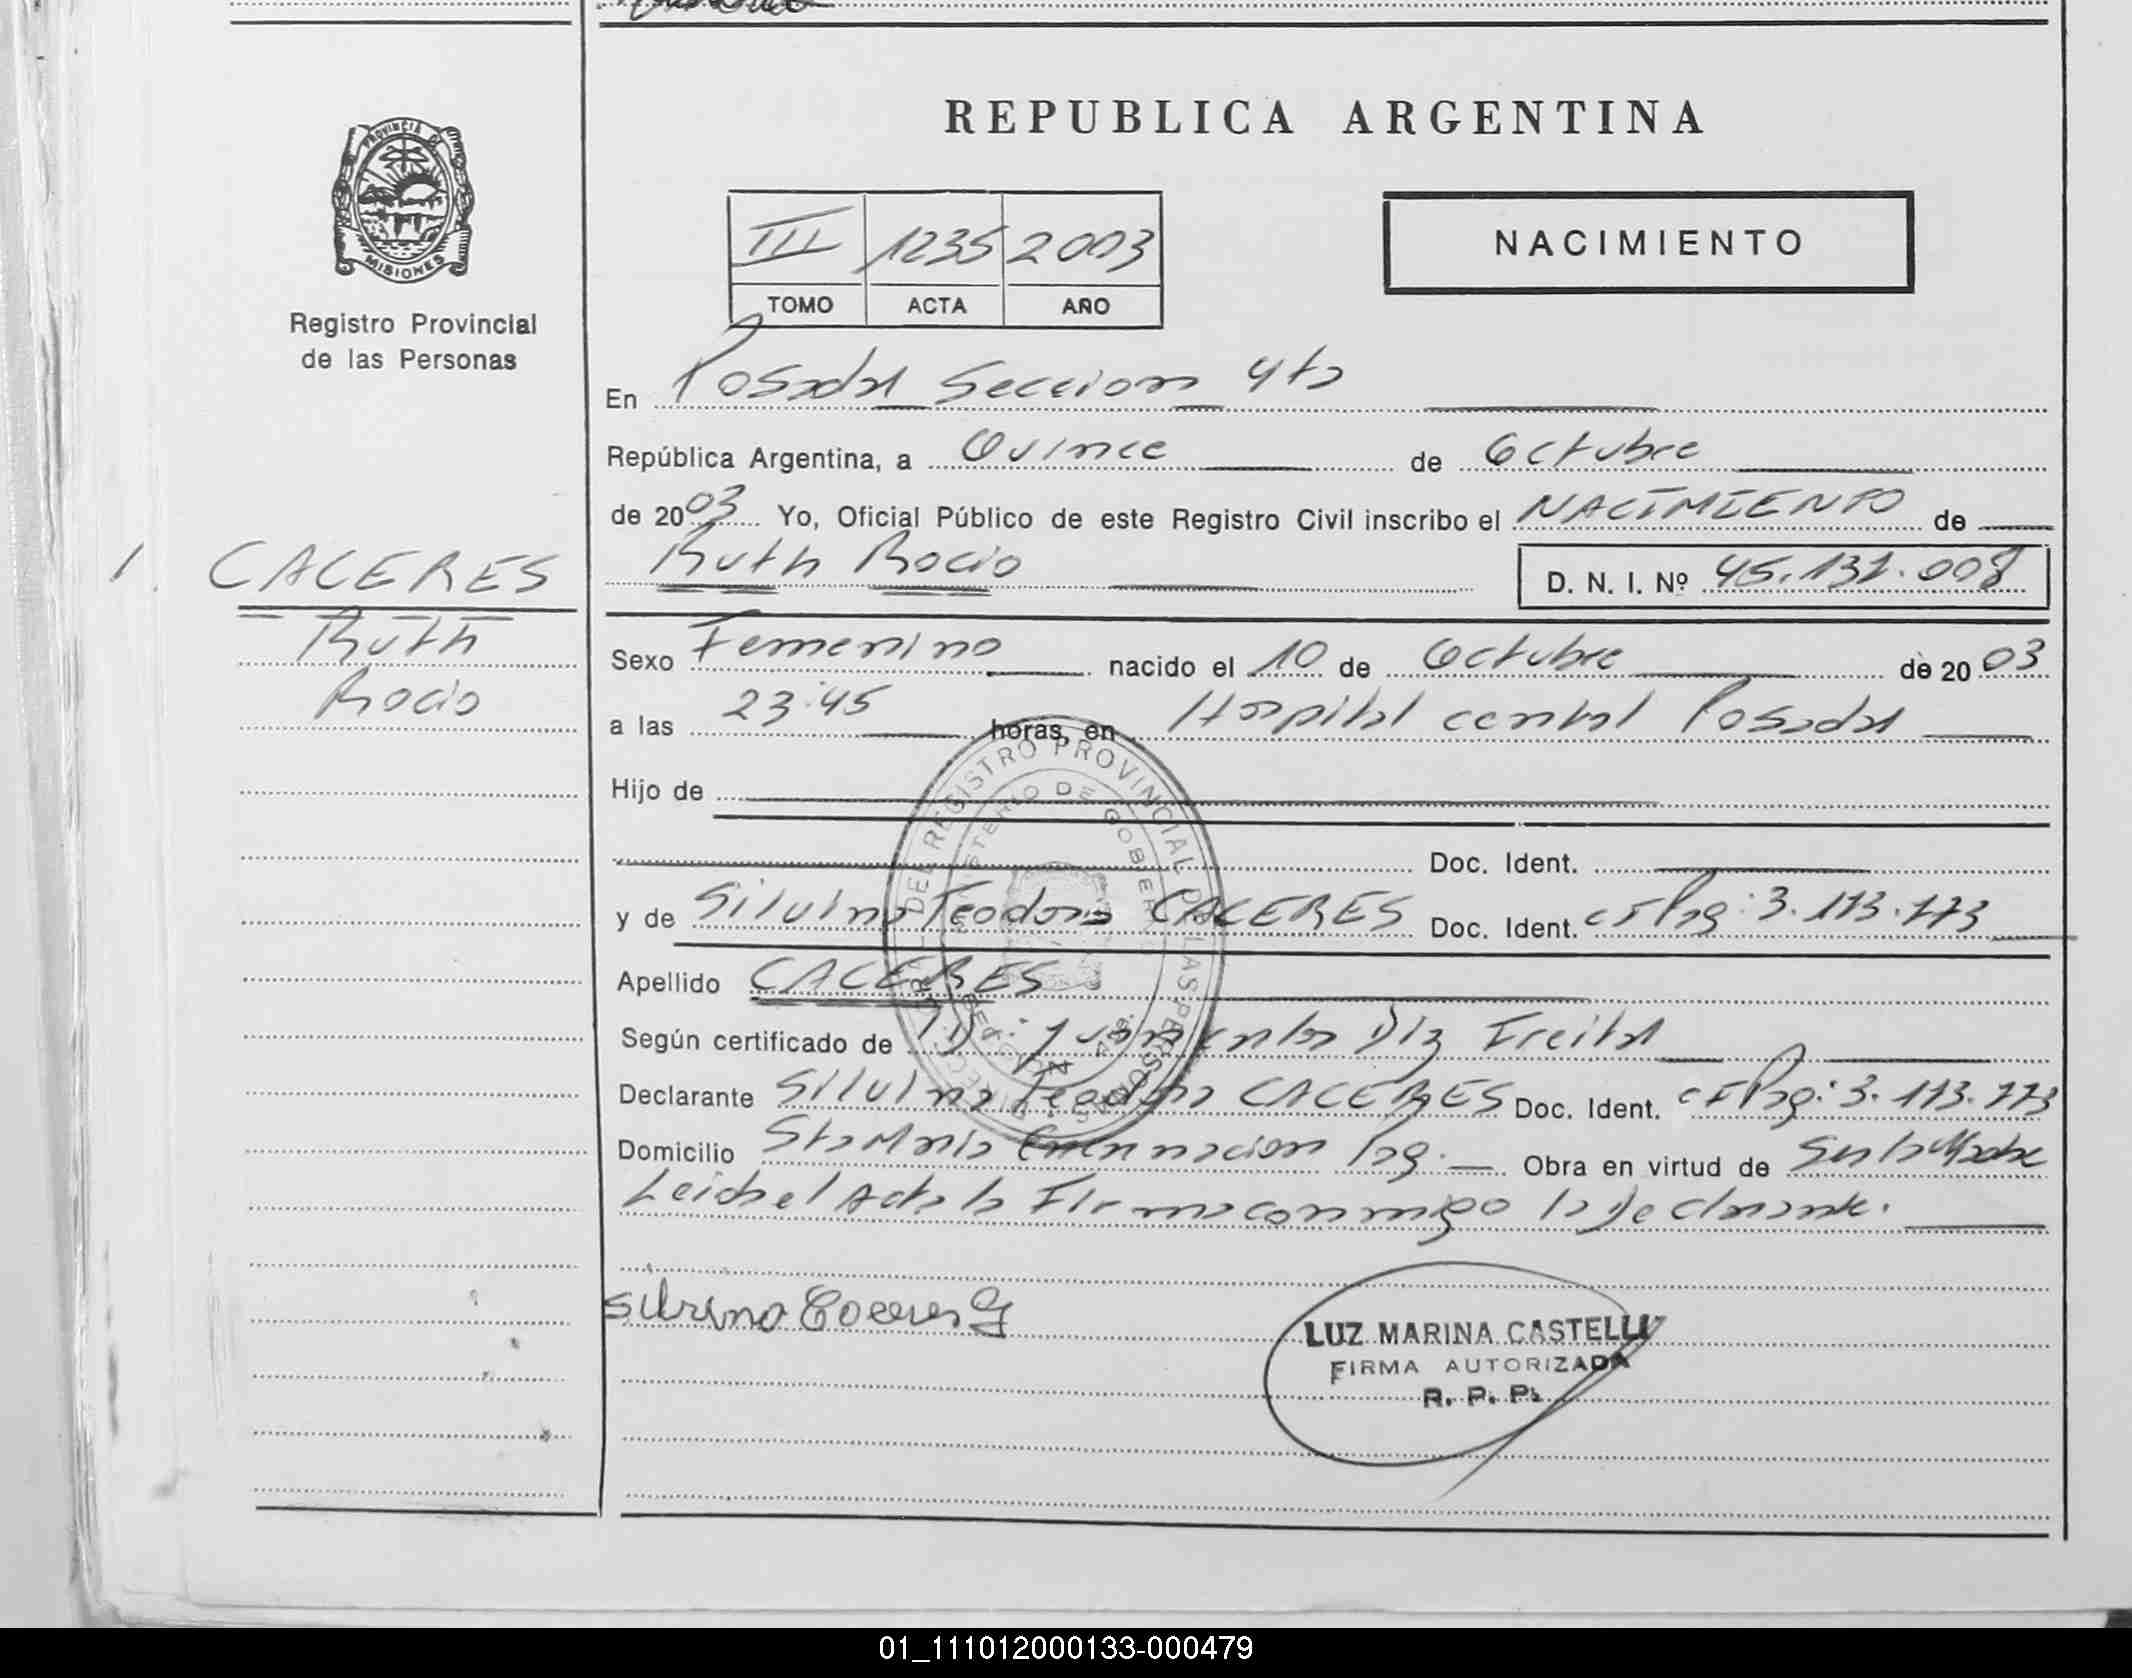 REPUBLICA ARGENTINA
PROVINCIA DE
MISIONES
Registro Provincial
de las Personas
III 1235 2003
TOMO ACTA AÑO
NACIMIENTO
En Posadas Seccion 4ta
República Argentina, a Quince de Octubre
de 2003 Yo, Oficial Público de este Registro Civil inscribo el NACIMIENTO de
Ruth Rocio D. N. I. Nº 45.131.008
1. CACERES
Ruth
Rocio
Sexo Femenino nacido el 10 de Octubre de 2003
a las 23:45 horas, en Hospital central Posadas
Hijo de
Doc. Ident.
y de Silvina Teodora CACERES Doc. Ident. CI Pag: 3.113.773
Apellido CACERES
Según certificado de Diz Freitas
Declarante Silvina Teodora CACERES Doc. Ident. CI Pag: 3.113.773
Domicilio Sta Maria Encarnacion Pag. Obra en virtud de Ser la Madre
Leida el Acta la Firma conmigo la declarante.
Silvina Caceres G
LUZ MARINA CASTELLI
FIRMA AUTORIZADA
R. P. P.
01_111012000133-000479